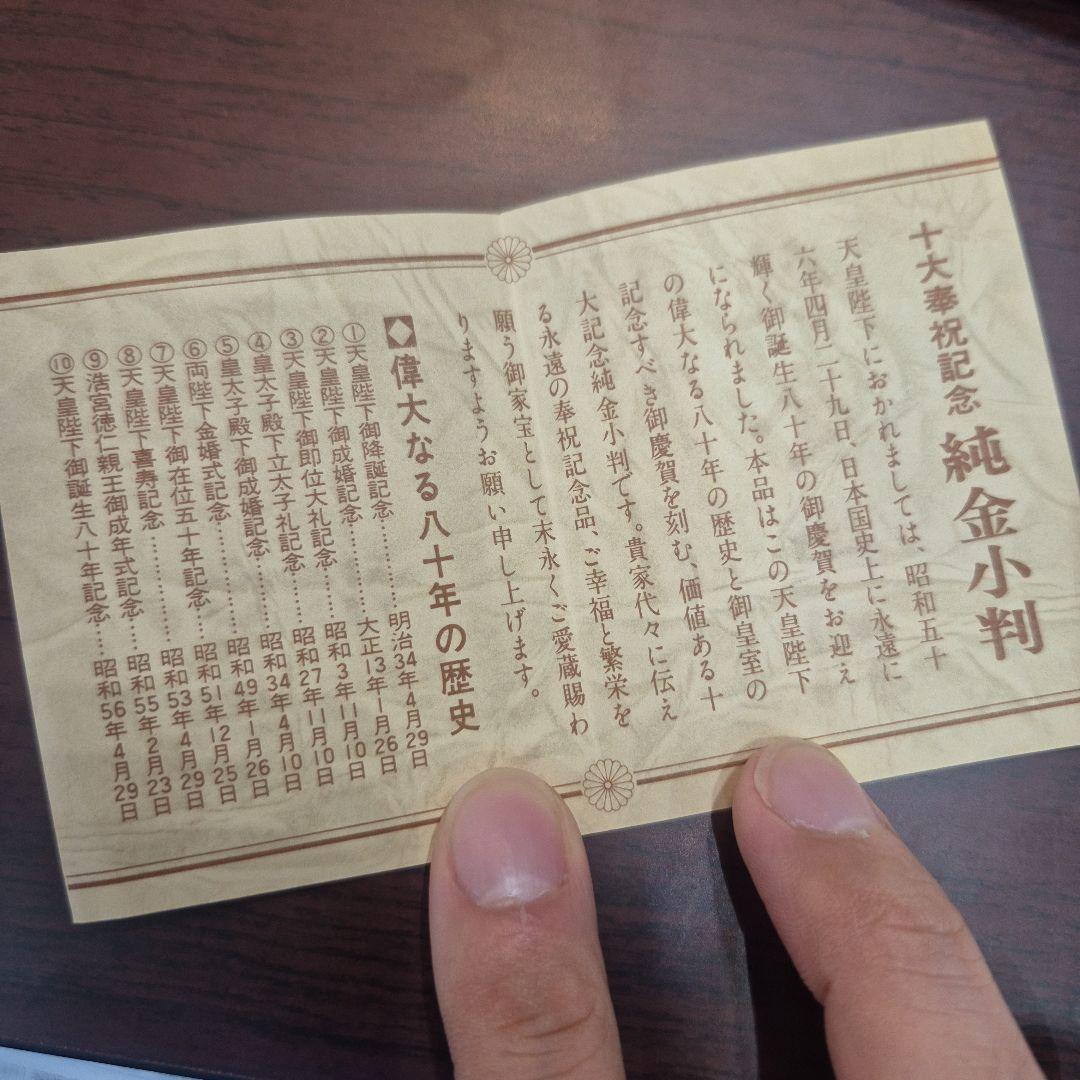 十大奉祝記念 純金小判
天皇陛下におかれましては、昭和五十
六年四月二十九日、日本国史上に永遠に
輝く御誕生八十年の御慶賀をお迎え
になられました。本品はこの天皇陛下
の偉大なる八十年の歴史と御皇室の
記念すべき御慶賀を刻む、価値ある十
大記念純金小判です。貴家代々に伝え
る永遠の奉祝記念品、ご幸福と繁栄を
願う御家宝として末永くご愛蔵賜わ
りますようお願い申し上げます。
◆偉大なる八十年の歴史
①天皇陛下御降誕記念………明治34年4月29日
②天皇陛下御成婚記念………大正13年1月26日
③天皇陛下御即位大礼記念……昭和3年11月10日
④皇太子殿下立太子礼記念……昭和27年11月10日
⑤皇太子殿下御成婚記念………昭和34年4月10日
⑥両陛下金婚式記念…………昭和49年1月26日
⑦天皇陛下御在位五十年記念…昭和51年12月25日
⑧天皇陛下喜寿記念…………昭和53年4月29日
⑨浩宮徳仁親王御成年式記念…昭和55年2月23日
⑩天皇陛下御誕生八十年記念…昭和56年4月29日